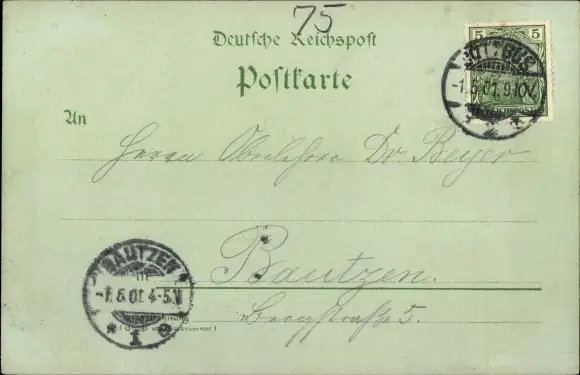 75
Deutsche Reichspost
Postkarte
5 5
COTTBUS
-1.6.01.9-10V.
* 2 *
An
Herrn Oberlehrer Dr. Beyer
Bautzen.
Bergstraße 5.
BAUTZEN
-1.6.01.4-5.N
* 1 e